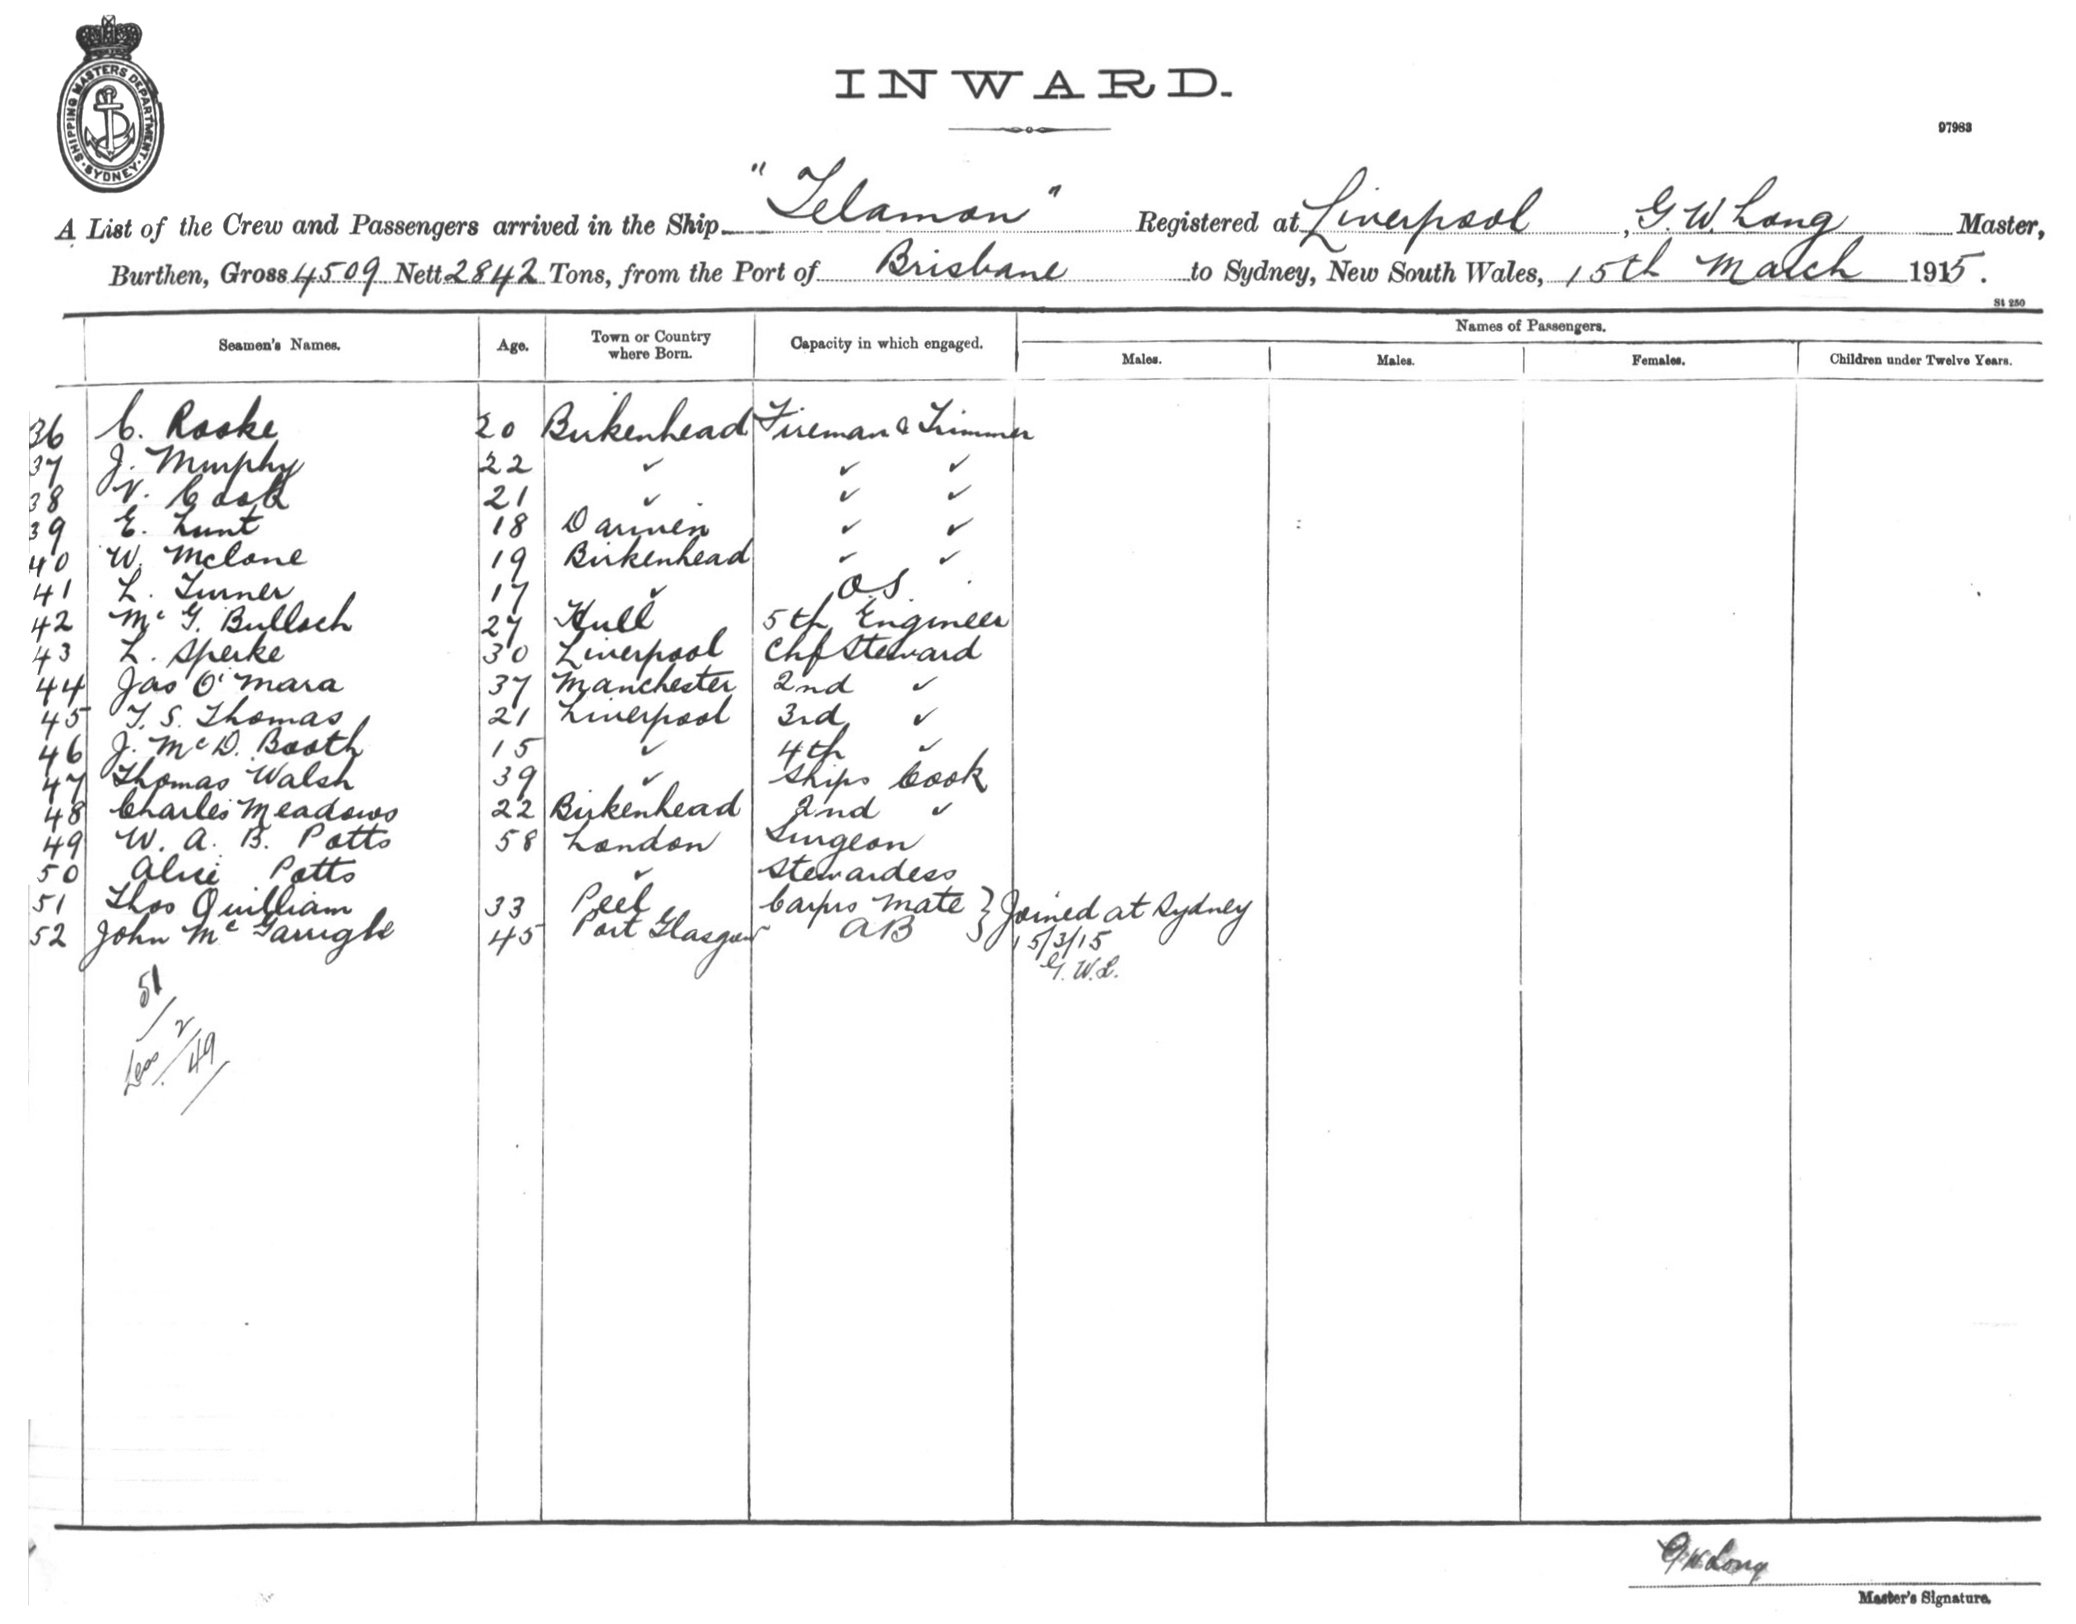 SHIPPING MASTERS DEPARTMENT
SYDNEY
INWARD.
97983
A List of the Crew and Passengers arrived in the Ship "Telamon" Registered at Liverpool, G. W. Long Master,
Burthen, Gross 4509 Nett 2842 Tons, from the Port of Brisbane to Sydney, New South Wales, 15th March 1915.
St 250
Seamen's Names. Age. Town or Country where Born. Capacity in which engaged. Names of Passengers.
Males. Males. Females. Children under Twelve Years.
36 C. Rooke 20 Birkenhead Fireman & Trimmer
37 J. Murphy 22 ✓ ✓ ✓
38 V. Cook 21 ✓ ✓ ✓
39 E. Lunt 18 Darwen ✓ ✓
40 W. McLone 19 Birkenhead ✓ ✓
41 L. Turner 17 ✓ O.S.
42 Mc G. Bulloch 27 Hull 5th Engineer
43 L. Speke 30 Liverpool Chf Steward
44 Jas O'Mara 37 Manchester 2nd ✓
45 T. S. Thomas 21 Liverpool 3rd ✓
46 J. McD. Booth 15 ✓ 4th ✓
47 Thomas Walsh 39 ✓ Ships Cook
48 Charles Meadows 22 Birkenhead 2nd ✓
49 W. A. B. Potts 58 London Surgeon
50 Alice Potts ✓ Stewardess
51 Thos Quilliam 33 Peel Carprs Mate } Joined at Sydney
52 John McGarrigle 45 Port Glasgow AB 15/3/15
G. W. L.
51
Less 2
49
G W Long
Master's Signature.